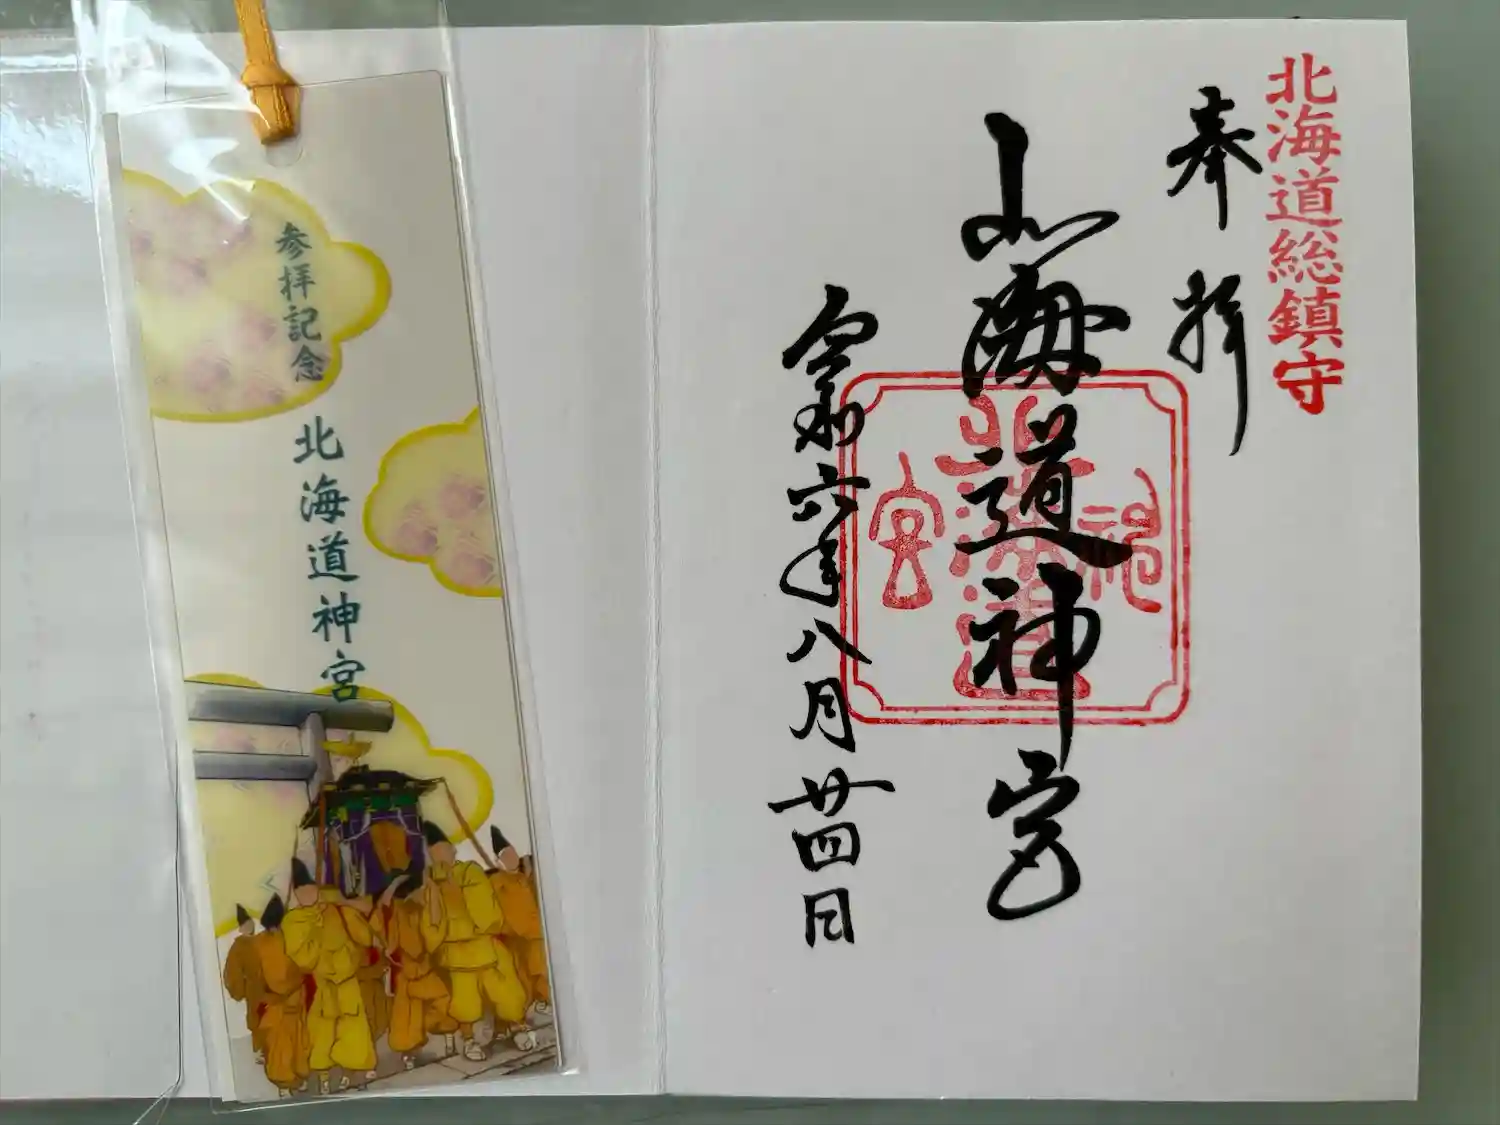 北海道総鎮守
奉拝
北海道神宮
北海道神宮
令和六年八月廿四日
参拝記念
北海道神宮